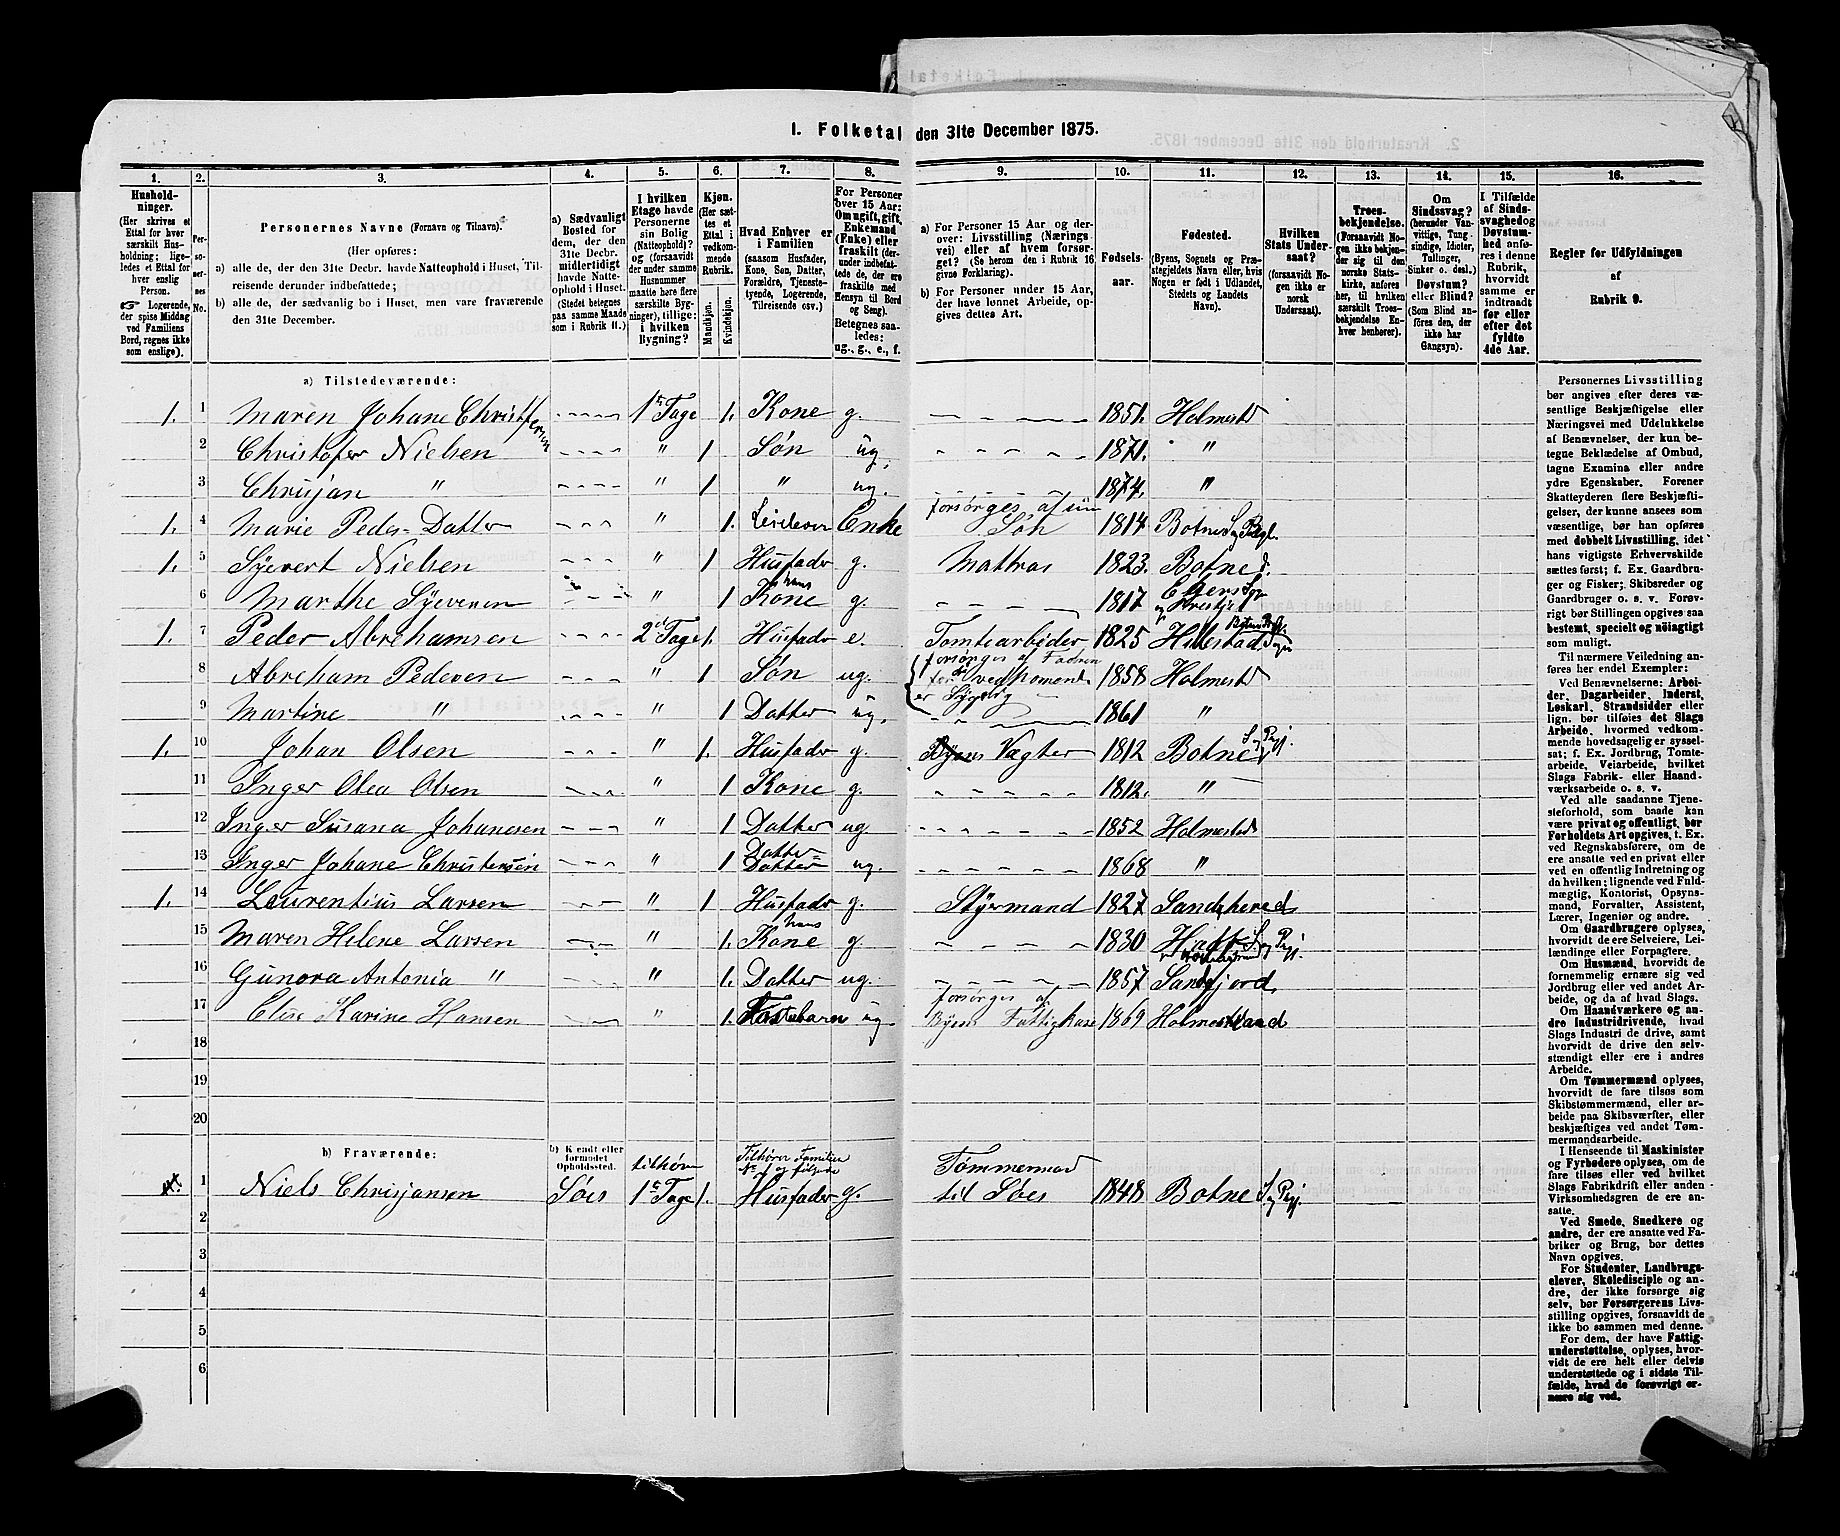 I. Folketal den 31te December 1875.
1. 2. 3. 4. 5. 6. 7. 8. 9. 10. 11. 12. 13. 14. 15. 16.
Hushold-
ninger.
(Her skrives et
Ettal for hver
særskilt Hus-
holdning; lige-
ledes et Ettal for
hver enslig
Person.
☞ Logerende,
der spise Middag
ved Familiens
Bord, regnes ikke
som enslige).
Per-
so-
ner-
nes
No.
Personernes Navne (Fornavn og Tilnavn).
(Her opføres:
a) alle de, der den 31te Decbr. havde Natteophold i Huset, Til-
reisende derunder indbefattede;
b) alle de, der sædvanlig bo i Huset, men vare fraværende
den 31te December.
a) Sædvanligt
Bosted for
dem, der den
31te Decbr.
midlertidigt
havde Natte-
ophold i Huset.
(Stedet betegnes
paa samme Maade
som i Rubrik 11.)
I hvilken
Etage havde
Personerne
sin Bolig
(Natteophold)?
og (forsaavidt
der under samme
Husnummer
maatte høre flere
særskilte Byg-
ninger), tillige:
i hvilken
Bygning?
Kjøn.
(Her sæt-
tes et
Ettal i
vedkom-
mende
Rubrik.
Mandkjøn.
Kvindekjøn.
Hvad Enhver er
i Familien
(saasom Husfader,
Kone, Søn, Datter,
Forældre, Tjeneste-
tyende, Logerende,
Tilreisende osv.)
For Personer
over 15 Aar:
Om ugift, gift,
Enkemand
(Enke) eller
fraskilt
(der-
indbefat-
tede de, der ere
fraskilte med
Hensyn til Bord
og Seng).
Betegnes saa-
ledes:
ug., g., e., f.
a) For Personer 15 Aar og der-
over: Livsstilling (Nærings-
vei) eller af hvem forsør-
get? (Se herom den i Rubrik 16
givne Forklaring).
b) For Personer under 15 Aar,
der have lønnet Arbeide, op-
gives dettes Art.
Fødsels-
aar.
Fødested.
(Byens, Sognets og Præ-
stegjeldets Navn eller, hvis
Nogen er født i Udlandet,
Stedets og Landets
Navn).
Hvilken
Stats Under-
saat?
(forsaavidt No-
gen ikke er
norsk
Undersaat).
Troes-
bekjendelse.
(Forsaavidt No-
gen ikke bekjen-
der sig til den
norske Stats-
kirke, anføres
her, til hvilken
særskilt Troes-
bekjendelse En-
hver henhører).
Om
Sindssvag?
(herunder Van-
vittige, Tung-
sindige, Idioter,
Tullinger,
Sinker o. desl.)
Døvstum?
eller Blind?
(Som Blind an-
føres den, der
ikke har
Gangsyn).
I Tilfælde
af Sinds-
svaghed og
Døvstum-
hed anfø-
res i denne
Rubrik,
hvorvidt
samme er
indtraadt
før eller
efter det
fyldte
4de Aar.
Regler for Udfyldningen
af
Rubrik 9.
a) Tilstedeværende:
1. 1 Maren Johane Christophersen 1s Tage 1. Kone g. 1851. Holmestd
2 Christofer Nielsen " 1 Søn ug. 1871. "
3 Chrisjan " " 1 " ug. 1874. "
1. 4 Marie Peders-Datter " 1. Enke forsørges af sin Søn 1814 Botne
1. 5 Syevert Nielsen " 1 Husfader g. Matros 1823. Botne
6 Marthe " 1 hans Kone g. 1817
1. 7 Peder Abrehamsen 2d Tage 1. Husfader e. Tomtearbeider 1825
8 Abreham Pedersen " 1 Søn ug. forsørges af Faderen 1858 Holmestd
9 Martine " " 1 Datter ug. 1861 "
1. 10 Johan Olsen " 1. Husfader g. Byens Vægter 1812 Botne
11 Inger Olea Olsen " 1 Kone g. 1812. "
12 Inger Susana Johanesen " 1 Datter ug. 1852 Holmestd
13 Inger Johane Christensen " 1 Datter Datter ug. 1868 "
1. 14 Laurentius Larsen " 1 Husfader g. Styrmand 1827 Sandeherred
15 Maren Helene Larsen " 1. hans Kone g. 1830
16 Gunora Antonia " " 1. Datter ug. 1857 Sandefjord
17 Elise Karine Hansen " 1. Fostebarn ug forsørges af Byens Fattigkase 1869 Holmestrand
18
19
20
b) Fraværende:
b) Kjendt eller
formodet
Opholdssted.
1 Niels Chrisjansen Søes tilhører 1s Tage 1. Tilhører Familie No 1 Husfader g. Tømmermand til Søes 1848 Botne S og Pgj.
2
3
4
5
6
Personernes Livsstilling
bør angives efter deres væ-
sentlige Beskjæftigelse eller
Næringsvei med Udelukkelse
af Benævnelser, der kun be-
tegne Beklædelse af Ombud,
tagne Examina eller andre
ydre Egenskaber. Forener
Skatteyderen flere Beskjæfti-
gelser, der kunne ansees som
væsentlige, bør han opføres
med dobbelt Livsstilling, idet
hans vigtigste Erhvervskilde
sættes først; f. Ex. Gaardbru-
ger og Fisker; Skibsreder og
Gaardbruger o. s. v. Forøv-
rigt bør Stillingen opgives saa
bestemt, specielt og nøiagtigt
som muligt.
Til nærmere Veiledning an-
føres her endel Exempler:
Ved Benævnelserne: Arbei-
der, Dagarbeider, Inderst,
Løskarl, Strandsidder eller
lign. bør tilføies det Slags
Arbeide, hvormed vedkom-
mende hovedsagelig er syssel-
sat; f. Ex. Jordbrug, Tomte-
arbeide, Veiarbeide, hvilket
Slags Fabrik- eller Haand-
værksarbeide o. s. v.
Ved alle saadanne Tjene-
steforhold, som baade kan
være privat og offentligt, bør
Forholdets Art opgives, t. Ex.
ved Regnskabsførere, om de
ere ansatte ved en privat eller
ved en offentlig Indretning og
da hvilken; lignende ved Fuld-
mægtig, Kontorist, Opsyns-
mand, Forvalter, Assistent,
Lærer, Ingeniør og andre.
Om Gaardbrugere oplyses,
hvorvidt de ere Selveiere, Lei-
lændinge eller Forpagtere.
Om Husmænd, hvorvidt de
fornemmelig ernære sig ved
Jordbrug eller ved andet Ar-
beide, og da af hvad Slags.
Om Haandværkere og an-
dre Industridrivende, hvad
Slags Industri de drive, samt
hvorvidt de drive den selv-
stændigt eller ere i andres
Arbeide.
Om Tømmermænd oplyses,
hvorvidt de fare tilsøs som
Skibstømmermænd, eller ar-
beide paa Skibsværfter, eller
beskjæftiges ved andet Tøm-
mermandsarbeide.
I Henseende til Maskinister
og Fyrbødere oplyses, om de
fare tilsøs eller ved hvilket
Slags Fabrikdrift eller anden
Virksomhedsgren de ere an-
satte.
Ved Smede, Snedkere og
andre, der ere ansatte ved Fa-
briker og Brug, bør dettes
Navn opgives.
For Studenter, Landbrugs-
elever, Skoledisciple og an-
dre, der ikke forsørge sig
selv, bør Forsørgerens Livs-
stilling opgives, forsaavidt de
ikke bo sammen med denne.
For dem, der have Fattig-
understøttelse, oplyses, hvor-
vidt de ere helt eller delvis
understøttede og i sidste Til-
fælde, hvad de forøvrigt er-
nære sig ved.